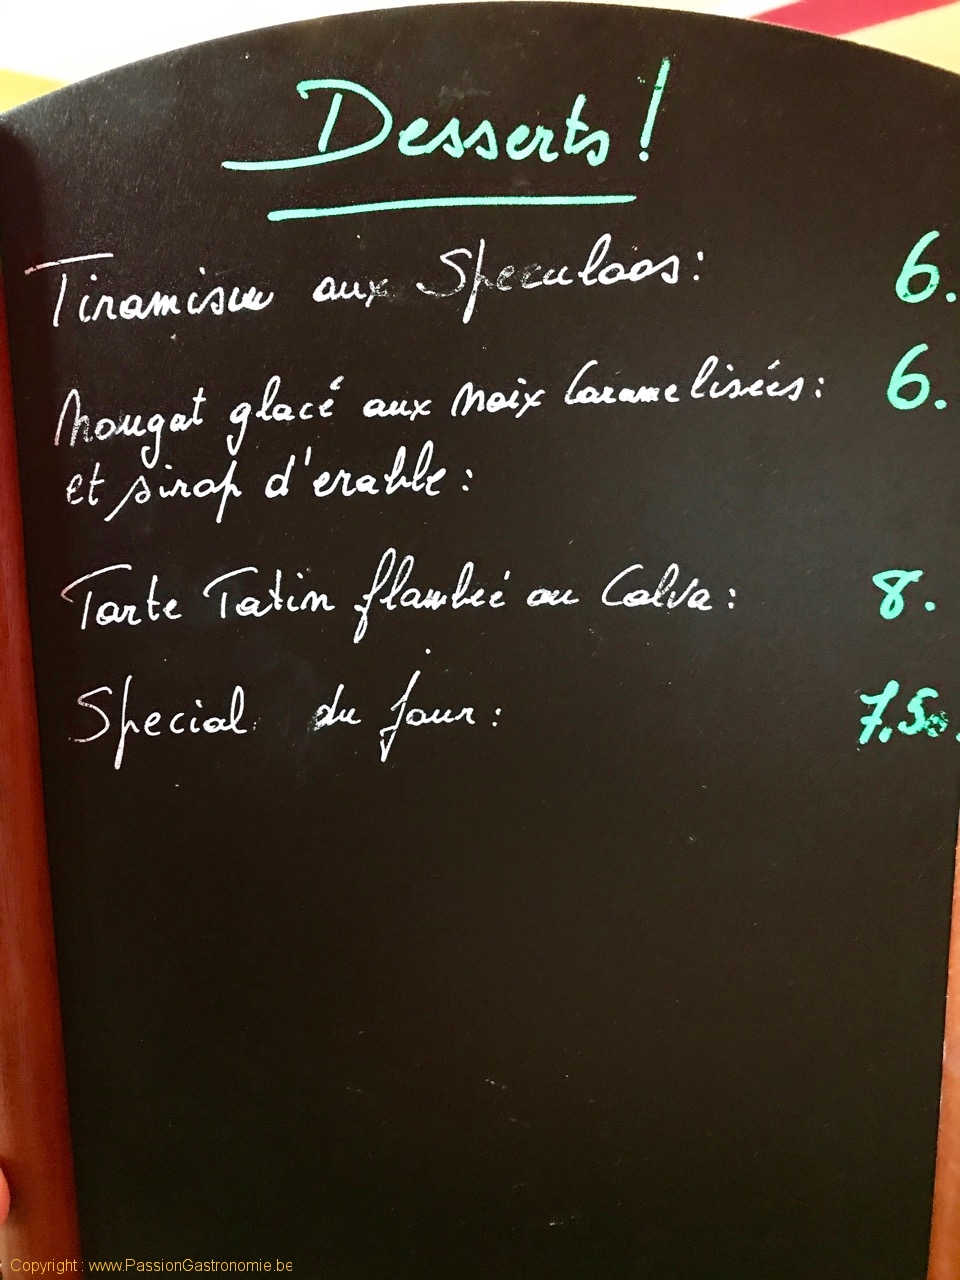 Desserts !
Tiramisu aux Speculoos : 6.
Nougat glacé aux noix Caramelisées : 6.
et sirop d'erable :
Tarte Tatin flambée au Calva : 8.
Special du jour : 7.50.
Copyright : www.PassionGastronomie.be